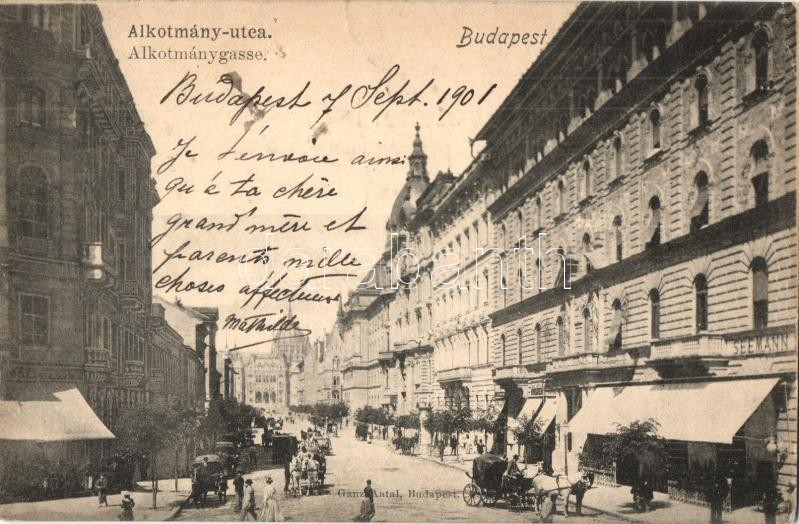 Alkotmány-utca.
Alkotmánygasse.
Budapest
Budapest 7 Sept. 1901
Je t'envoie ainsi
qu'à ta chère
grand'mère et
parents mille
choses affectueuses
Mathilde
darabanth
SEEMANN
Ganz Antal, Budapest.